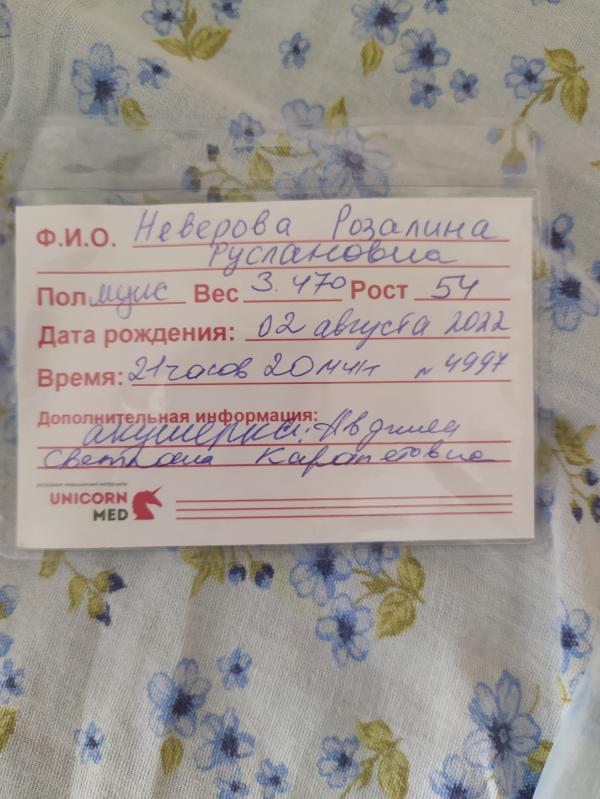 Ф.И.О. Неверова Розалина
Руслановна
Пол муж Вес 3.470 Рост 54
Дата рождения: 02 августа 2022
Время: 21 часов 20 мин № 4997
Дополнительная информация:
акушерка:
Светлана Карапетовна
UNICORN
MED